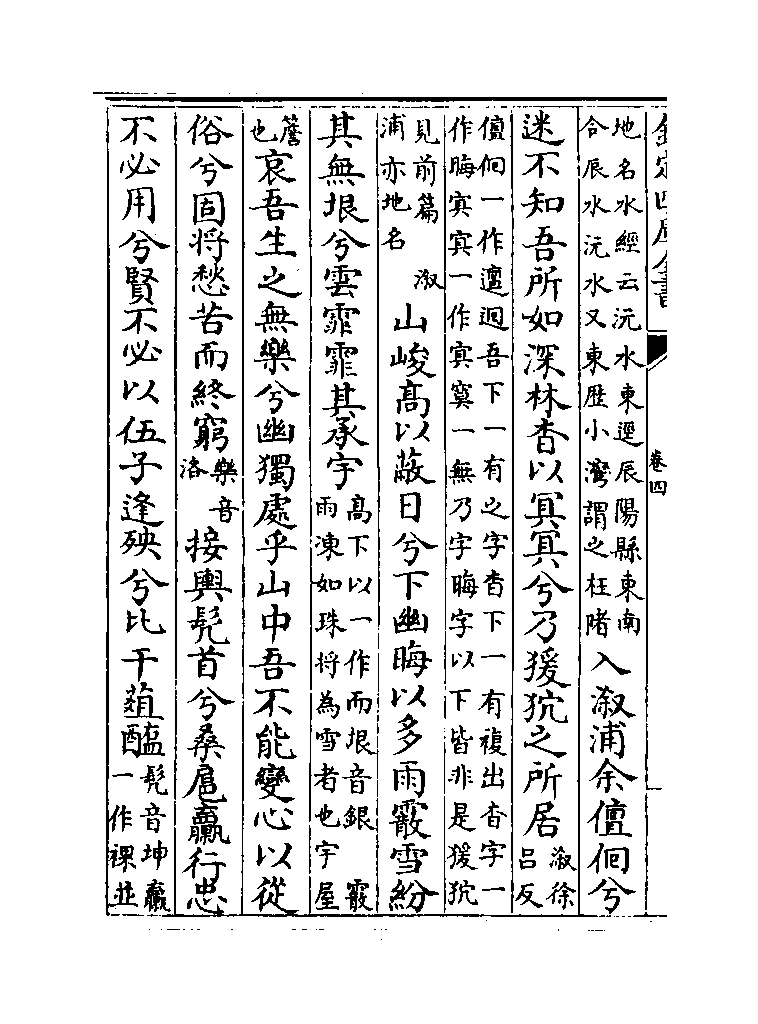 欽定四庫全書 卷四
地名水經云沅水東逕辰陽縣東南
合辰水沅水又東歴小灣謂之枉陼
入溆浦余儃佪兮
迷不知吾所如深林杳以冥冥兮乃猨狖之所居
溆徐
吕反
儃佪一作邅迴吾下一有之字杳下一有複出杳字一
作晦冥冥一作冥寞一無乃字晦字以下皆非是猨狖
見前篇 溆
浦亦地名
山峻髙以蔽日兮下幽晦以多雨霰雪紛
其無垠兮雲霏霏其承宇
髙下以一作而垠音銀 霰
雨凍如珠将為雪者也宇屋
簷
也
哀吾生之無樂兮幽獨處乎山中吾不能變心以從
俗兮固将愁苦而終窮
樂音
洛
接輿髠首兮桑扈臝行忠
不必用兮賢不必以伍子逢殃兮比干葅醢
髠音坤臝
一作裸並